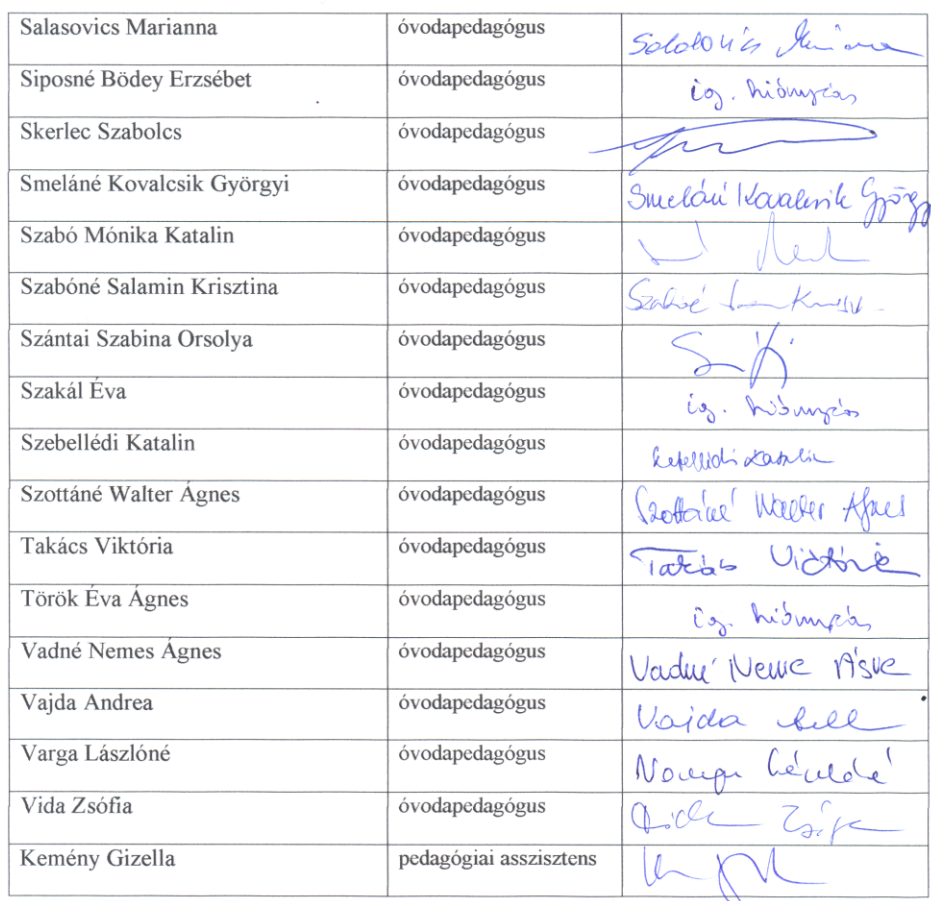 Salasovics Marianna óvodapedagógus
Siposné Bödey Erzsébet óvodapedagógus ig. hiányzás
Skerlec Szabolcs óvodapedagógus
Smeláné Kovalcsik Györgyi óvodapedagógus Smeláné Kovalcsik György
Szabó Mónika Katalin óvodapedagógus
Szabóné Salamin Krisztina óvodapedagógus Szabóné
Szántai Szabina Orsolya óvodapedagógus
Szakál Éva óvodapedagógus ig. hiányzás
Szebellédi Katalin óvodapedagógus Szebellédi Katalin
Szottáné Walter Ágnes óvodapedagógus Szottáné Walter Ágnes
Takács Viktória óvodapedagógus Takács Viktória
Török Éva Ágnes óvodapedagógus ig. hiányzás
Vadné Nemes Ágnes óvodapedagógus Vadné Nemes Ágnes
Vajda Andrea óvodapedagógus Vajda
Varga Lászlóné óvodapedagógus Varga Lászlóné
Vida Zsófia óvodapedagógus Vida Zsófia
Kemény Gizella pedagógiai asszisztens